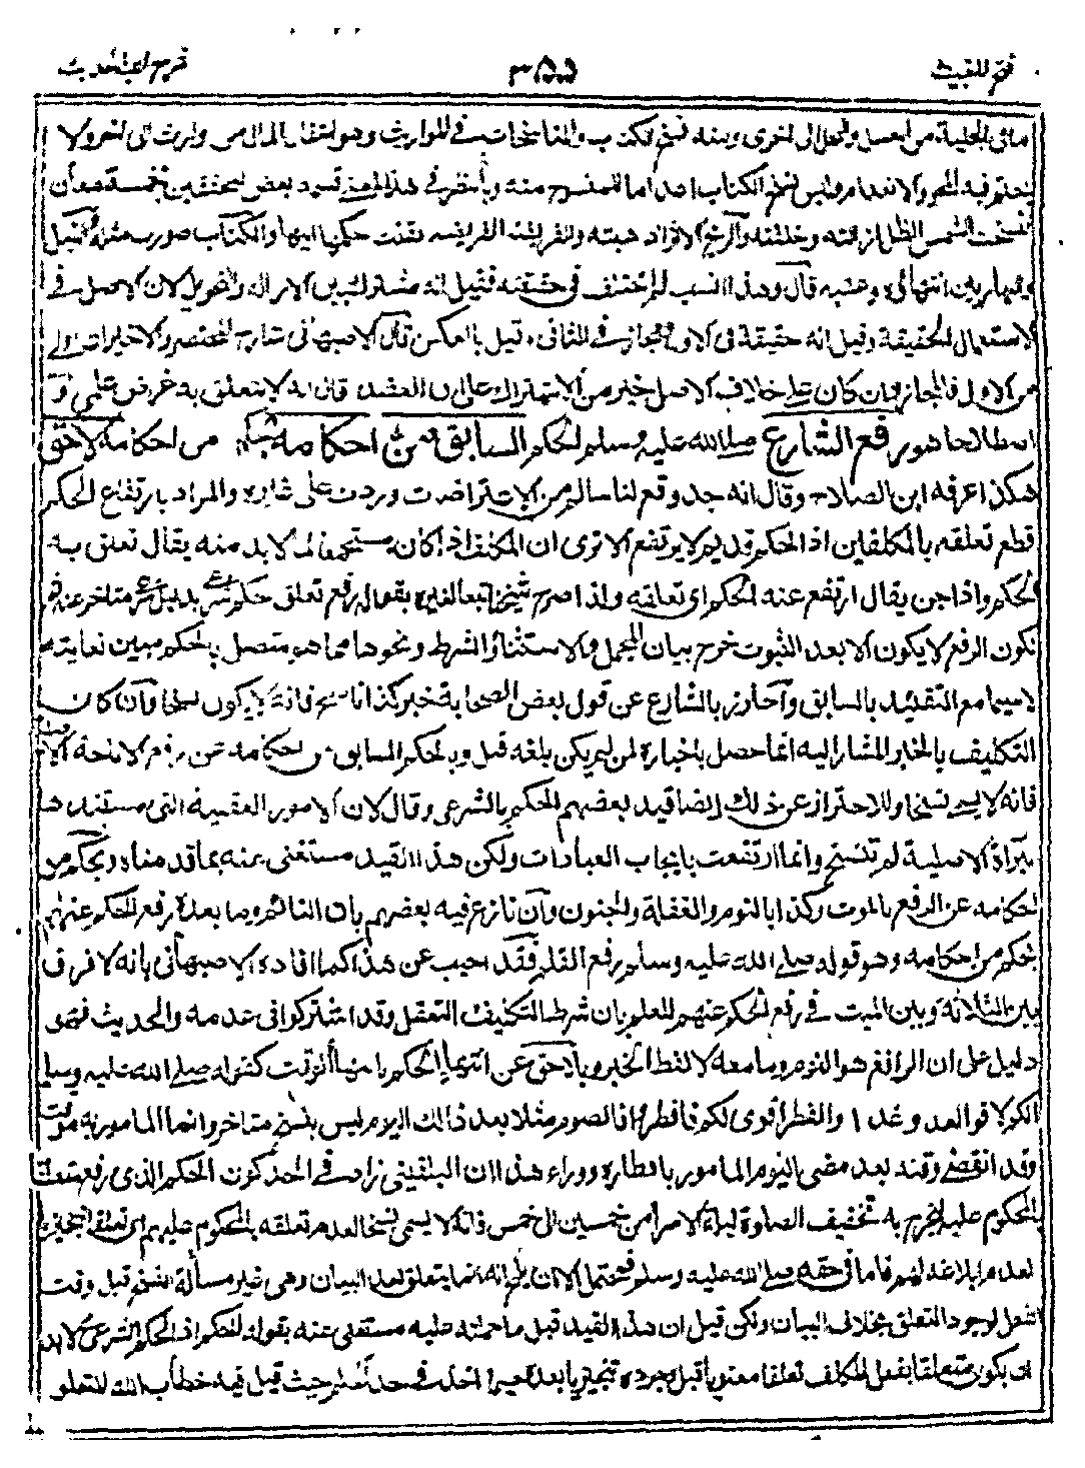 فتح المغيث ٣٥٥ شرح الفية الحديث
ما فى الخلية من العسل والنحل الى اخرى ومنه نسخ الكتاب والمناسخات فى المواريث وهو انتقال المال من وارث الى اخر ولا
يتحتم فيه المحو والانعدام وليس نسخ الكتاب اعداما للمنسوخ منه وبالنظر فى هذا المعنى تردد بعض المحققين
نسخت الشمس الظل ازالته وخلفته والريح الاثر
قال وهذا النسب للاختلف فى حقيقته فقيل انه مشترك بين الازالة والتحويل لان الاصل فى
الاستعمال الحقيقة وقيل انه حقيقة فى الاول مجاز فى الثانى وقيل بالعكس قال الاصبهانى شارح المختصر والاخيران اولى
من الاول فالمجاز وان كان على خلاف الاصل خير من الاشتراك على ان العضد قال انه لا يتعلق به غرض علمى و
اصطلاحا هو رفع الشارع صلى الله عليه وسلم الحكم السابق من احكامه بحكم من احكامه لاحق
هكذا عرفه ابن الصلاح وقال انه حد وقع لنا سالم من الاعتراضات وردت على غيره والمراد بارتفاع الحكم
قطع تعلقه بالمكلفين اذ الحكم قديم لا يرتفع الا ترى ان المكلف اذا كان مستجمعا لما لا بد منه يقال تعلق به
الحكم واذا جن يقال ارتفع عنه الحكم اى تعلقه ولذا صرح شيخنا تبعا لغيره بقوله رفع تعلق حكم شرعى بدليل شرعى متاخر عنه ثم
لكون الرفع لا يكون الا بعد الثبوت خرج بيان المجمل والاستثناء والشرط ونحوها مما هو متصل بالحكم مبين لغايته
لا سيما مع التقييد بالسابق واحترز بالشارع عن قول بعض الصحابة خبر كذا ناسخ فانه لا يكون نسخا وان كان
التكليف بالخبر المشار اليه انما حصل باخباره لمن لم يكن بلغه قبل وبالحكم السابق من احكامه عن رفع الاباحة الاصلية
فانه لا يسمى نسخا وللاحتراز عن ذلك ايضا قيد بعضهم الحكم بالشرعى وقال لان الامور العقلية التى مستندها
البراءة الاصلية لم تنسخ وانما ارتفعت بايجاب العبادات ولكن هذا القيد مستغنى عنه بما قدمناه وبحكم من
احكامه عن الرفع بالموت وكذا بالنوم والغفلة والجنون وان نازع فيه بعضهم بان النائم وما بعده رفع الحكم عنهم
بحكم من احكامه وهو قوله صلى الله عليه وسلم رفع القلم فقد اجيب عن هذا كما افاده الاصبهانى بانه لا فرق
بين الثلاثة وبين الميت فى رفع الحكم عنهم للعلم بان شرط التكليف التعقل وقد اشتركوا فى عدمه والحديث فهى
دليل على ان الرافع هو النوم وما معه لا لفظ الخبر وبلاحق عن انتهاء الحكم بانتهاء الوقت كقوله صلى الله عليه وسلم
انكم لاقوا العدو غدا والفطر اقوى لكم فافطروا فالصوم مثلا بعد ذلك اليوم ليس بنسخ متاخر وانما المامور به موقت
وقد انقضى وقته بعد مضى اليوم المامور بافطاره ووراء هذا ان البلقينى زاد فى الحد كون الحكم الذى رفع متعلقا
بالمحكوم عليه ليخرج به تخفيف الصلوة ليلة الاسراء من خمسين الى خمس فانه لا يسمى نسخا لعدم تعلقه بالمحكوم عليهم اى تعلقا تنجيزيا
لعدم ابلاغه لهم فاما فى حقه صلى الله عليه وسلم فمحتمل الا ان يلمح انه انما يتعلق بعد البيان وهى غير مسألة النسخ قبل وقت
الفعل لوجود التعلق بخلاف البيان ولكن قيل ان هذا القيد قبل ما حملته عليه مستغنى عنه بقوله للحكم اذ الحكم الشرعى لا بد
ان يكون متعلقا بفعل المكلف تعلقا معنويا قبل وجوده تنجيزيا بعده حيث قيل فيه خطاب الله المتعلق